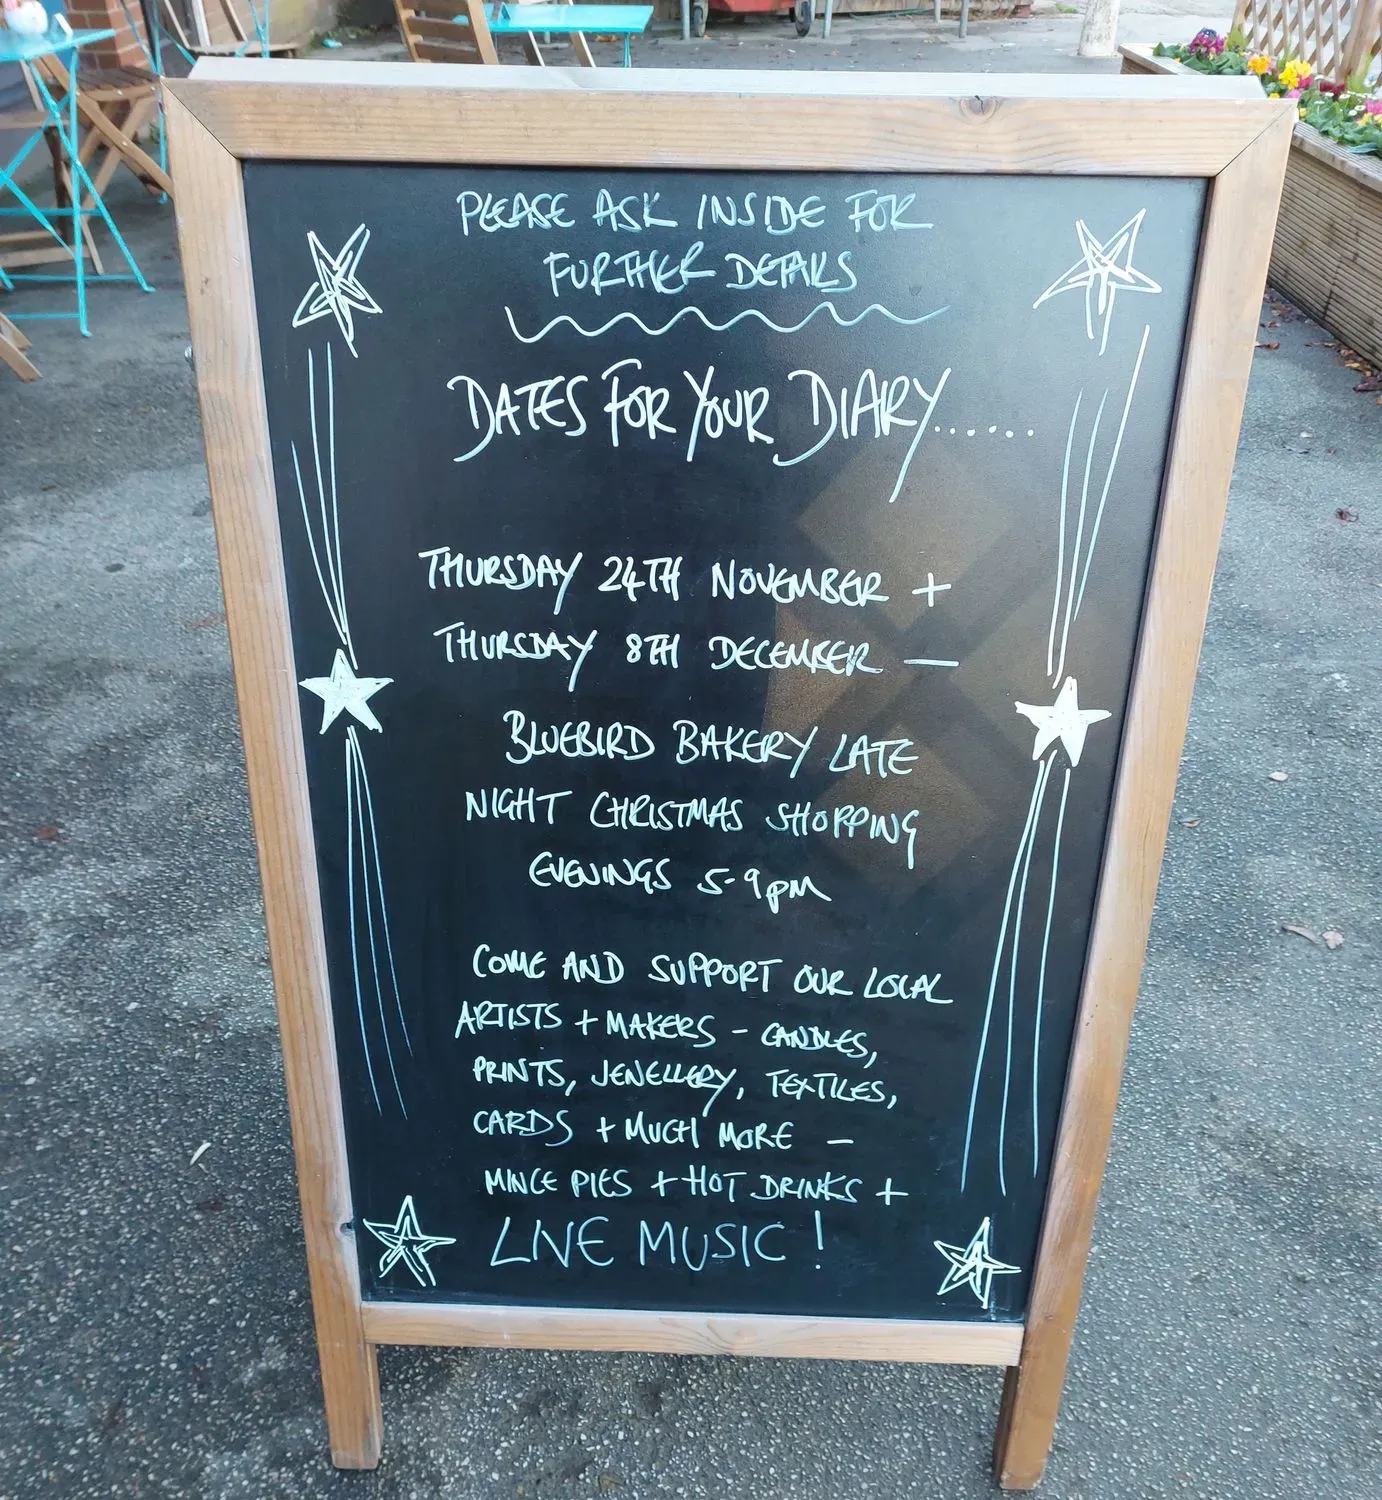 PLEASE ASK INSIDE FOR
FURTHER DETAILS
DATES FOR YOUR DIARY......
THURSDAY 24TH NOVEMBER +
THURSDAY 8TH DECEMBER —
BLUEBIRD BAKERY LATE
NIGHT CHRISTMAS SHOPPING
EVENINGS 5-9pm
COME AND SUPPORT OUR LOCAL
ARTISTS + MAKERS - CANDLES,
PRINTS, JEWELLERY, TEXTILES,
CARDS + MUCH MORE —
MINCE PIES + HOT DRINKS +
LIVE MUSIC!